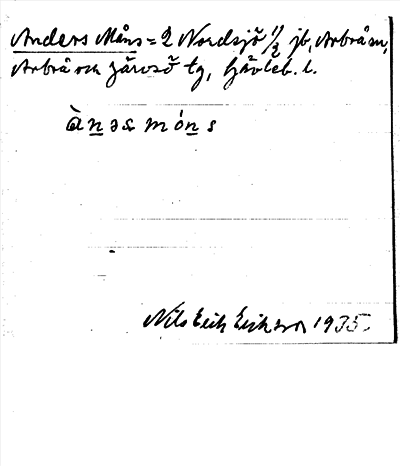 Anders Måns = 2 Nordsjö 1/2 jb, Arbrå sn,
Arbrå och Järvsö tg, Gävleb. l.
ànəs móns
Nils Erik Eriksson 1935.